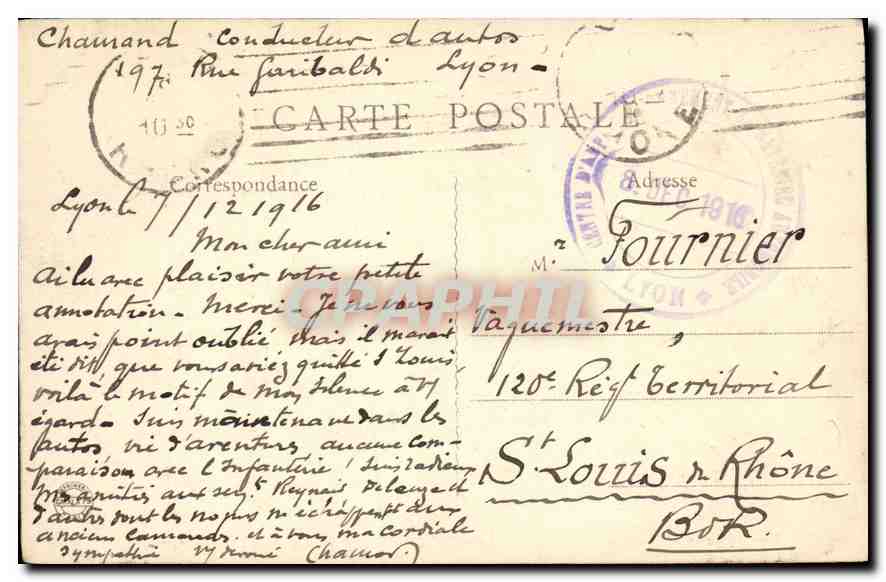 Chamand conducteur d'autos
197 Rue Garibaldi Lyon -
CARTE POSTALE
Correspondance
Adresse
Lyon le 7/12 1916
Mon cher ami
Ai lu avec plaisir votre petite
annotation - Merci - Je ne vous
avais point oublié mais il m'avait
été dit, que vous aviez quitté St Louis,
voilà le motif de mon silence à vtre
égard - Suis maintenant dans les
autos vie d'aventures aucune com-
paraison avec l'Infanterie !
mes amitiés aux Reynaud Deleuze et
d'autres dont les noms m'échappent aux
anciens camarades. et à vous ma cordiale
sympathie
Mr Fournier
Vaguemestre,
120e Régt Territorial
St Louis du Rhône
BdR.
8 DEC 1916
LYON
CRAPHIL